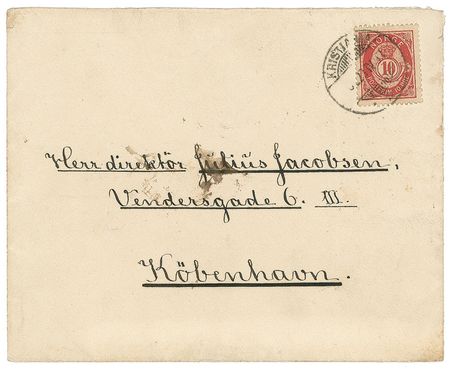 KRISTIANIA
NORGE
10
Herr direktör Julius Jacobsen,
Vendersgade 6. III.
Köbenhavn.